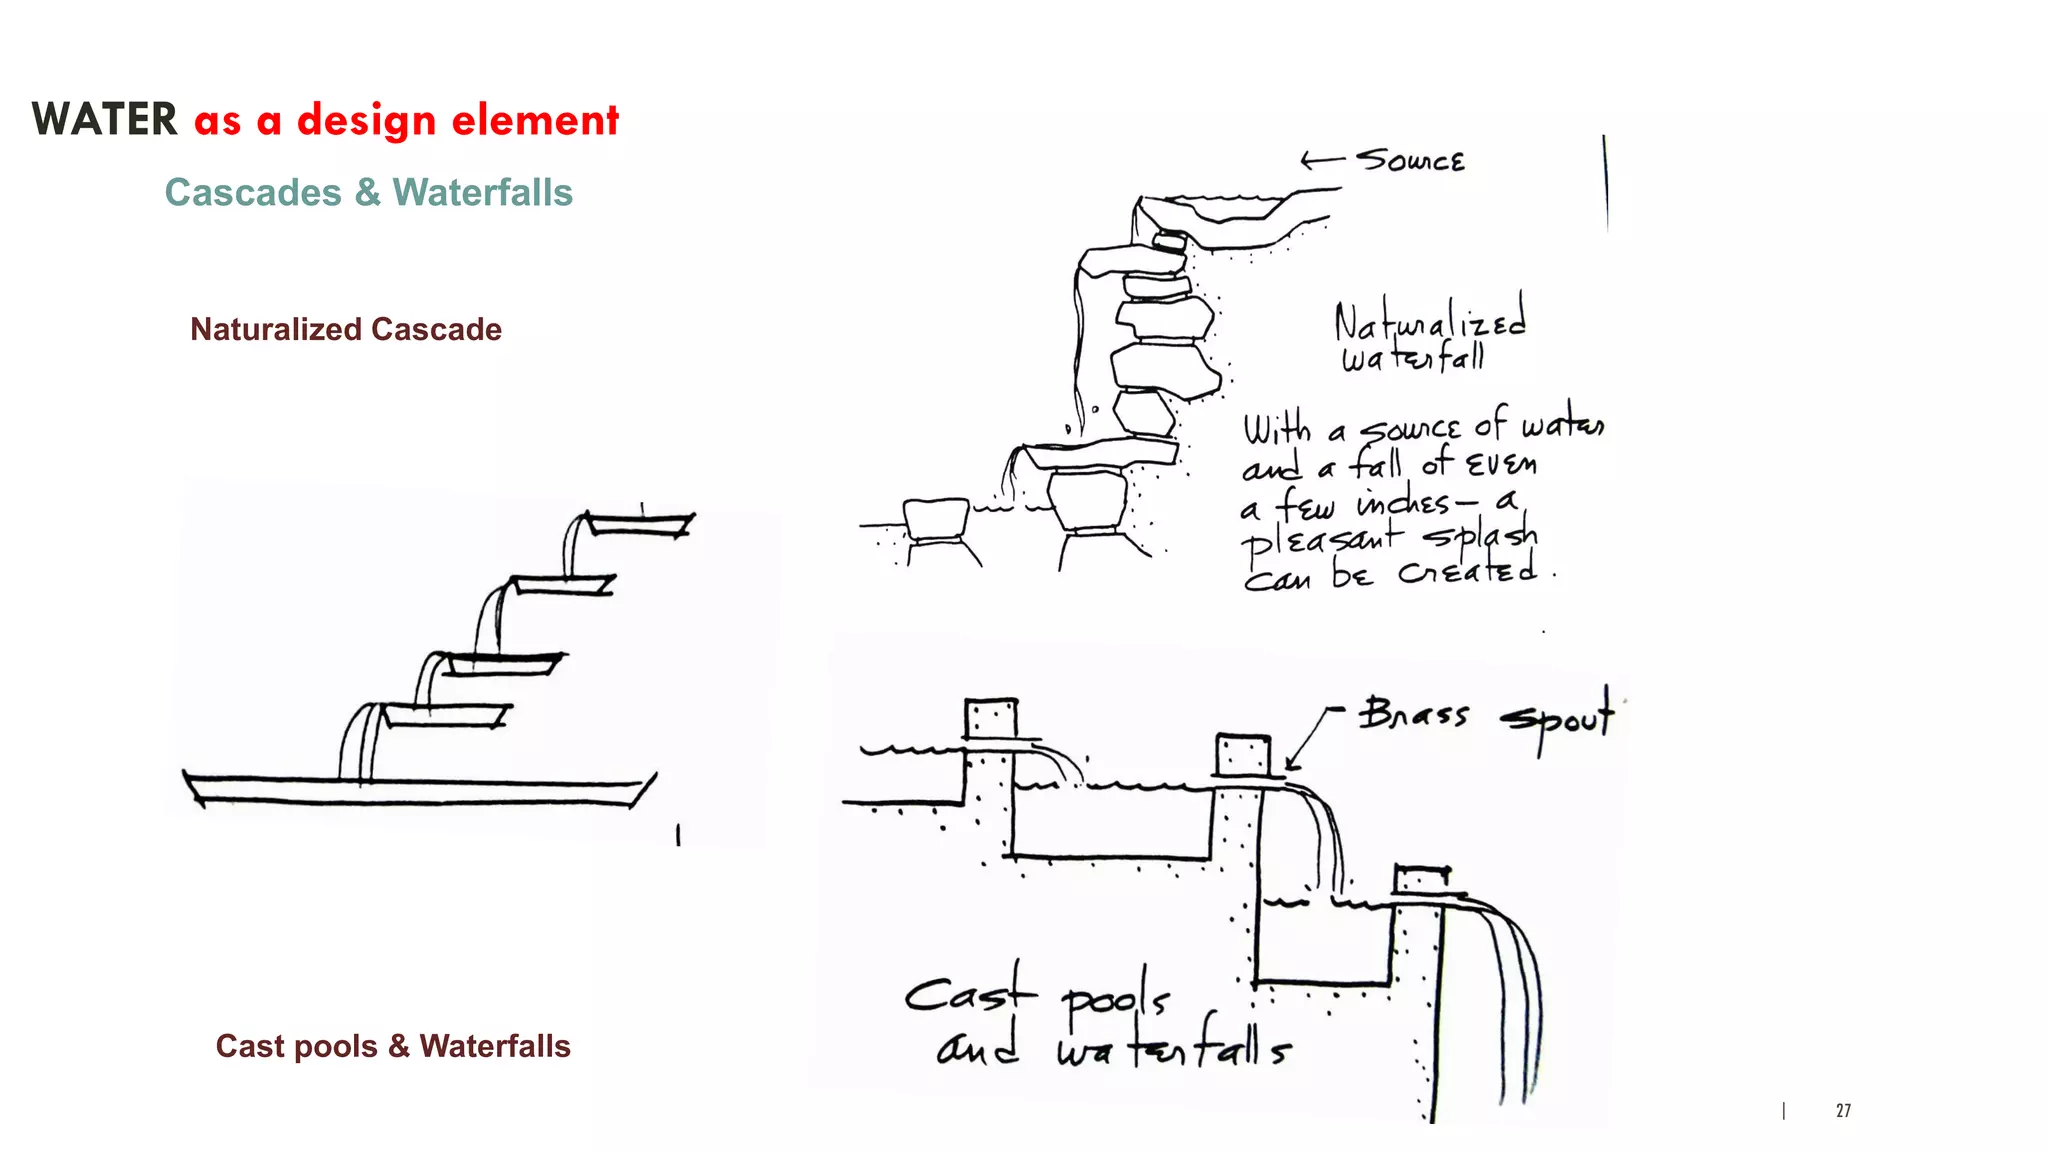 WATER as a design element
Cascades & Waterfalls
Naturalized Cascade
← Source
Naturalized
waterfall
With a source of water
and a fall of even
a few inches – a
pleasant splash
can be created.
Brass spout
Cast pools
and waterfalls
Cast pools & Waterfalls
| 27